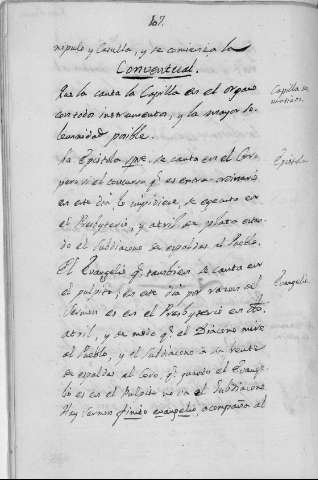 107.
nipulo y Casulla, y se comienza la
Conventual.
Que la canta la Capilla en el organo
con todos instrumentos, y la mayor so-
lemnidad posible.
La Epistola spre. se canta en el Coro
pero si el concurso q.e es extraordinario
en este dia lo impidiese, se ejecuta en
el Presbyterio, y atril de plata estan-
do el Subdiacono de espaldas al Pueblo.
El Evangelio q.e tambien se canta en
el pulpito, en este dia por razon del
Sermon es en el Presbyterio en
atril, y de modo q.e el Diacono mire
al Pueblo, y el Subdiacono a su frente
de espaldas al Coro, q.e quando el Evange-
lio es en el Pulpito no va el Subdiacono
Hay Sermon finito evangelio acompaña al
Capilla
Epistola
Evangelio